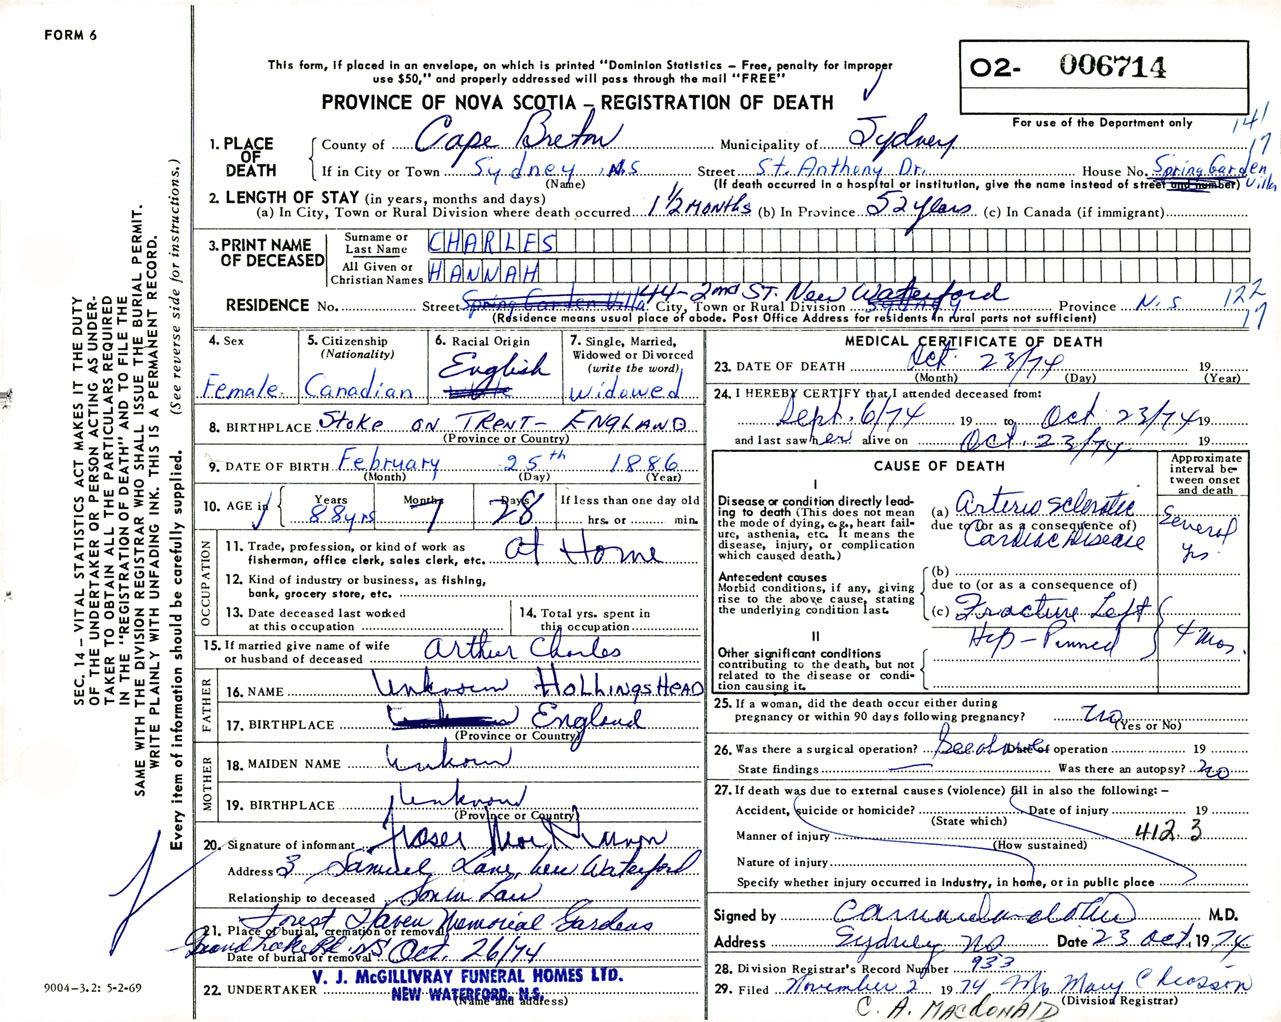 FORM 6
This form, if placed in an envelope, on which is printed "Dominion Statistics – Free, penalty for improper
use $50," and properly addressed will pass through the mail "FREE"
PROVINCE OF NOVA SCOTIA – REGISTRATION OF DEATH
O2- 006714
For use of the Department only
141
17
1. PLACE OF DEATH
County of Cape Breton Municipality of Sydney
If in City or Town Sydney N.S Street St. Anthony Dr. House No. Spring Garden Villa
(Name) (If death occurred in a hospital or institution, give the name instead of street and number)
2. LENGTH OF STAY (in years, months and days)
(a) In City, Town or Rural Division where death occurred 1 1/2 MONTHS (b) In Province 52 years (c) In Canada (if immigrant)
3. PRINT NAME OF DECEASED
Surname or Last Name CHARLES
All Given or Christian Names HANNAH
RESIDENCE No. Street Spring Garden Villa 44-2nd ST. New Waterford City, Town or Rural Division Sydney Province N.S 122
17
(Residence means usual place of abode. Post Office Address for residents in rural parts not sufficient)
4. Sex Female
5. Citizenship (Nationality) Canadian
6. Racial Origin English
7. Single, Married, Widowed or Divorced (write the word) Widowed
8. BIRTHPLACE Stoke ON TRENT – ENGLAND
(Province or Country)
9. DATE OF BIRTH February 25th 1886
(Month) (Day) (Year)
10. AGE in Years 88yrs Months 7 Days 28 If less than one day old
hrs. or min.
OCCUPATION
11. Trade, profession, or kind of work as
fisherman, office clerk, sales clerk, etc. at Home
12. Kind of industry or business, as fishing,
bank, grocery store, etc.
13. Date deceased last worked
at this occupation
14. Total yrs. spent in
this occupation
15. If married give name of wife
or husband of deceased Arthur Charles
FATHER
16. NAME Unknown HOLLINGSHEAD
17. BIRTHPLACE England
(Province or Country)
MOTHER
18. MAIDEN NAME Unknown
19. BIRTHPLACE Unknown
(Province or Country)
20. Signature of informant Fraser MacKinnon
Address 3 Samuel Lane, New Waterford
Relationship to deceased Son in Law
21. Place of burial, cremation or removal Forest Haven Memorial Gardens
Grand Lake Rd. NS
Date of burial or removal Oct. 26/74
22. UNDERTAKER V. J. McGILLIVRAY FUNERAL HOMES LTD.
NEW WATERFORD, N.S.
(Name and address)
MEDICAL CERTIFICATE OF DEATH
23. DATE OF DEATH Oct. 23/74 19
(Month) (Day) (Year)
24. I HEREBY CERTIFY that I attended deceased from:
Sept. 6/74 19 to Oct. 23/74 19
and last saw her alive on Oct. 23/74 19
CAUSE OF DEATH
Approximate interval be-
tween onset
and death
I
Disease or condition directly lead-
ing to death (This does not mean
the mode of dying, e.g., heart fail-
ure, asthenia, etc. It means the
disease, injury, or complication
which caused death.)
(a) Arterio sclerotic
due to (or as a consequence of)
Cardiac Disease
Several
yrs.
Antecedent causes
Morbid conditions, if any, giving
rise to the above cause, stating
the underlying condition last.
(b)
due to (or as a consequence of)
(c) Fracture Left
Hip - Pinned
4 mos.
II
Other significant conditions
contributing to the death, but not
related to the disease or condi-
tion causing it.
25. If a woman, did the death occur either during
pregnancy or within 90 days following pregnancy? no
(Yes or No)
26. Was there a surgical operation? See above Date of operation 19
State findings — Was there an autopsy? no
27. If death was due to external causes (violence) fill in also the following: –
Accident, suicide or homicide? Date of injury 19
(State which)
Manner of injury 412.3
(How sustained)
Nature of injury
Specify whether injury occurred in industry, in home, or in public place
Signed by M.D.
Address Sydney NS Date 23 Oct. 1974
28. Division Registrar's Record Number 933
29. Filed November 2 1974 Mrs Mary Chiasson
(Division Registrar)
C. A. MACDONALD
SEC. 14 – VITAL STATISTICS ACT MAKES IT THE DUTY
OF THE UNDERTAKER OR PERSON ACTING AS UNDER-
TAKER TO OBTAIN ALL THE PARTICULARS REQUIRED
IN THE "REGISTRATION OF DEATH" AND TO FILE THE
SAME WITH THE DIVISION REGISTRAR WHO SHALL ISSUE THE BURIAL PERMIT.
WRITE PLAINLY WITH UNFADING INK. THIS IS A PERMANENT RECORD.
Every item of information should be carefully supplied. (See reverse side for instructions.)
9004-3.2: 5-2-69